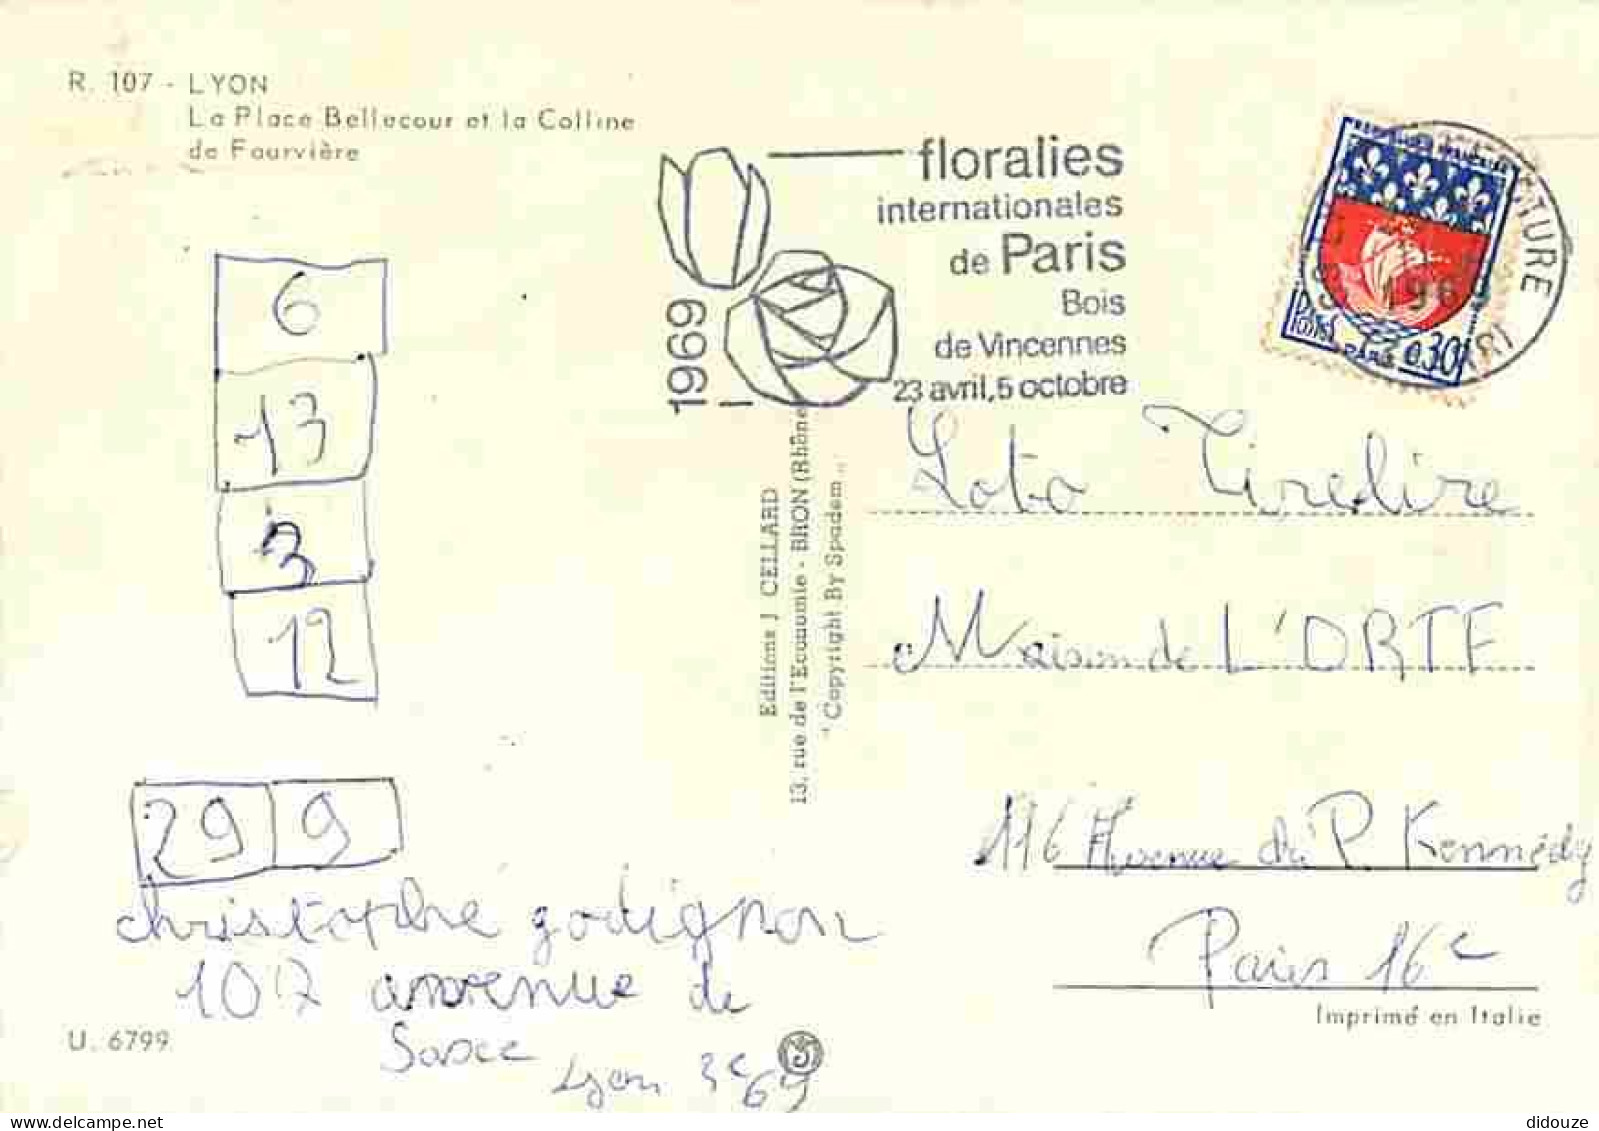 R. 107 - LYON
La Place Bellecour et la Colline
de Fourvière
floralies
internationales
de Paris
Bois
de Vincennes
23 avril, 5 octobre
1969
REPUBLIQUE FRANCAISE
POSTES
PARIS
0,30
1969
6
13
3
12
29 9
christophe godignon
107 avenue de
Saxe
Lyon 3e
69
U. 6799
Editions J CELLARD
13, rue de l'Economie - BRON (Rhône
"Copyright By Spadem"
Loto Tirelire
Maison de L'ORTF
116 Avenue du P. Kennedy
Paris 16e
Imprimé en Italie
didouze